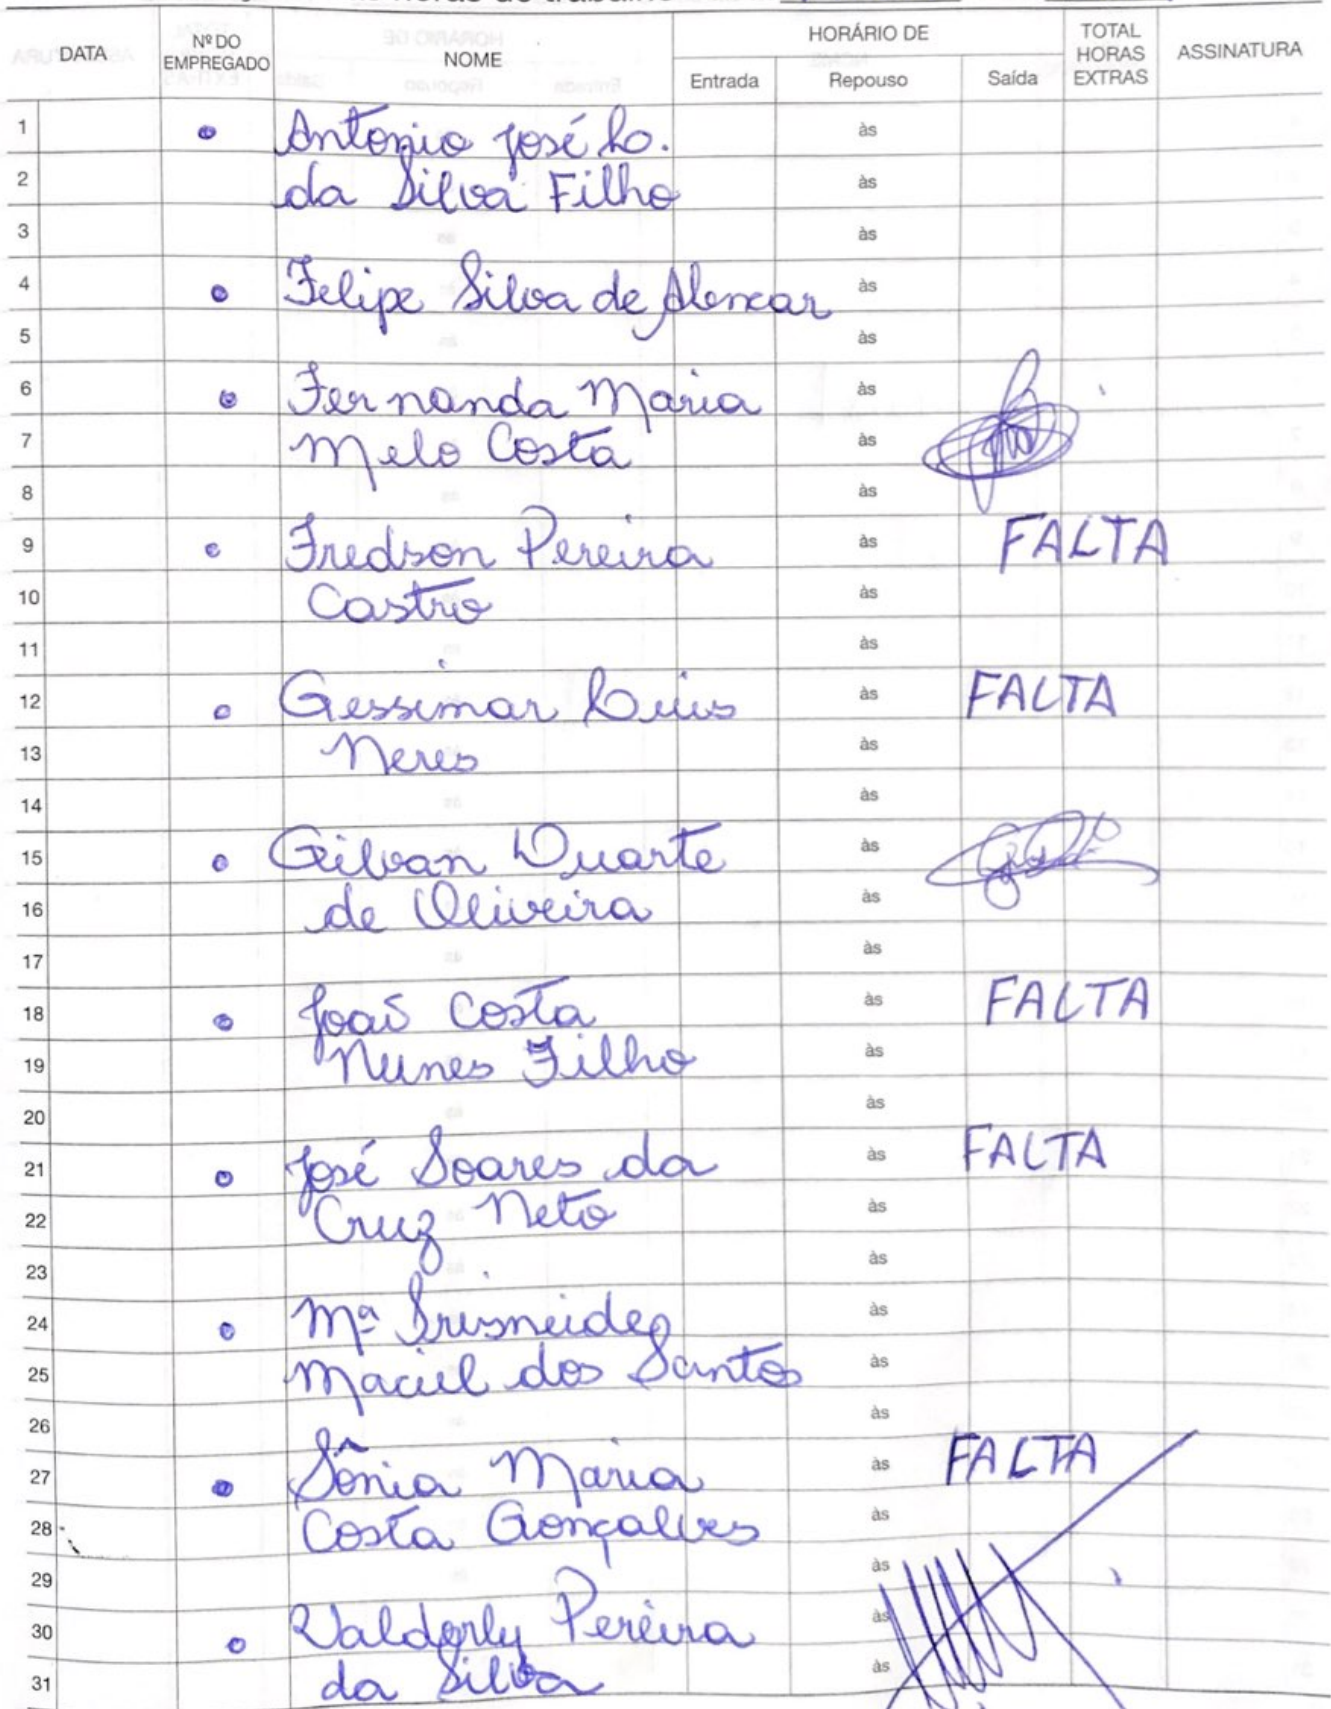 horas de trabalho
DATA Nº DO EMPREGADO NOME HORÁRIO DE TOTAL HORAS EXTRAS ASSINATURA
Entrada Repouso Saída
1 Antonio José Lo. às
2 da Silva Filho às
3 às
4 Felipe Silva de Alencar às
5 às
6 Fernanda Maria às
7 Melo Costa às
8 às
9 Fredson Pereira às FALTA
10 Castro às
11 às
12 Gessimar Luis às FALTA
13 Neres às
14 às
15 Gilvan Duarte às
16 de Oliveira às
17 às
18 João Costa às FALTA
19 Nunes Filho às
20 às
21 José Soares da às FALTA
22 Cruz Neto às
23 às
24 Mª Irisneide às
25 Maciel dos Santos às
26 às
27 Sônia Maria às FALTA
28 Costa Gonçalves às
29 às
30 Valderly Pereira às
31 da Silva às